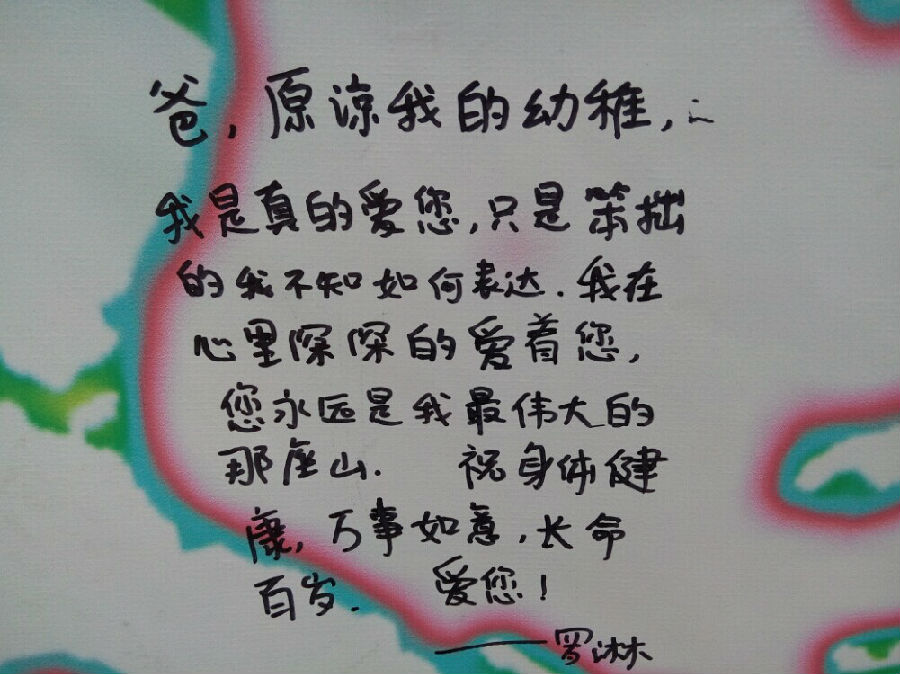 爸，原谅我的幼稚，
我是真的爱您，只是笨拙
的我不知如何表达．我在
心里深深的爱着您，
您永远是我最伟大的
那座山． 祝身体健
康，万事如意，长命
百岁． 爱您！
——罗沐林